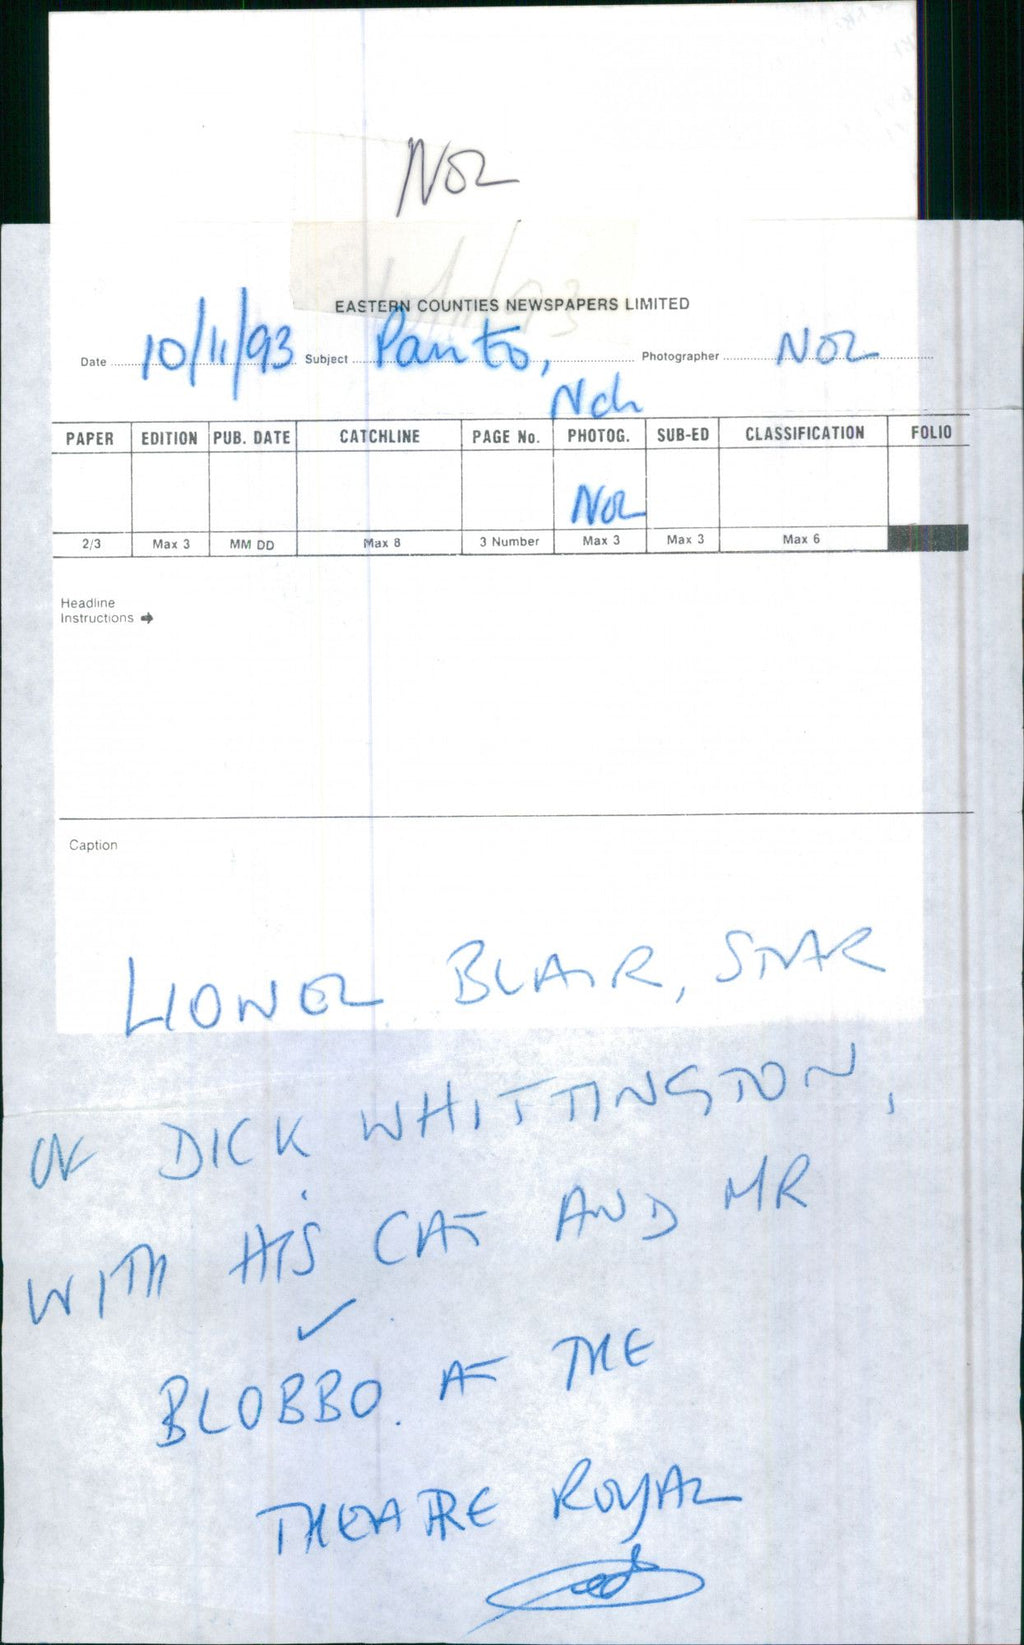 NOL
EASTERN COUNTIES NEWSPAPERS LIMITED
Date 10/11/93 Subject Panto, Photographer NOL
Nch
PAPER EDITION PUB. DATE CATCHLINE PAGE No. PHOTOG. SUB-ED CLASSIFICATION FOLIO
NOL
2/3 Max 3 MM DD Max 8 3 Number Max 3 Max 3 Max 6
Headline
Instructions
Caption
LIONEL BLAIR, STAR
OF DICK WHITTINGTON,
WITH HIS CAT AND MR
BLOBBO. AT THE
THEATRE ROYAL